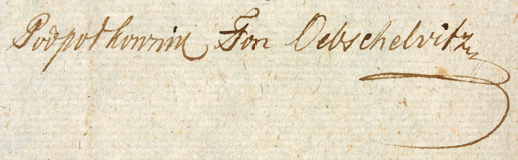 Podpołkownik Fon Oebschelvitz